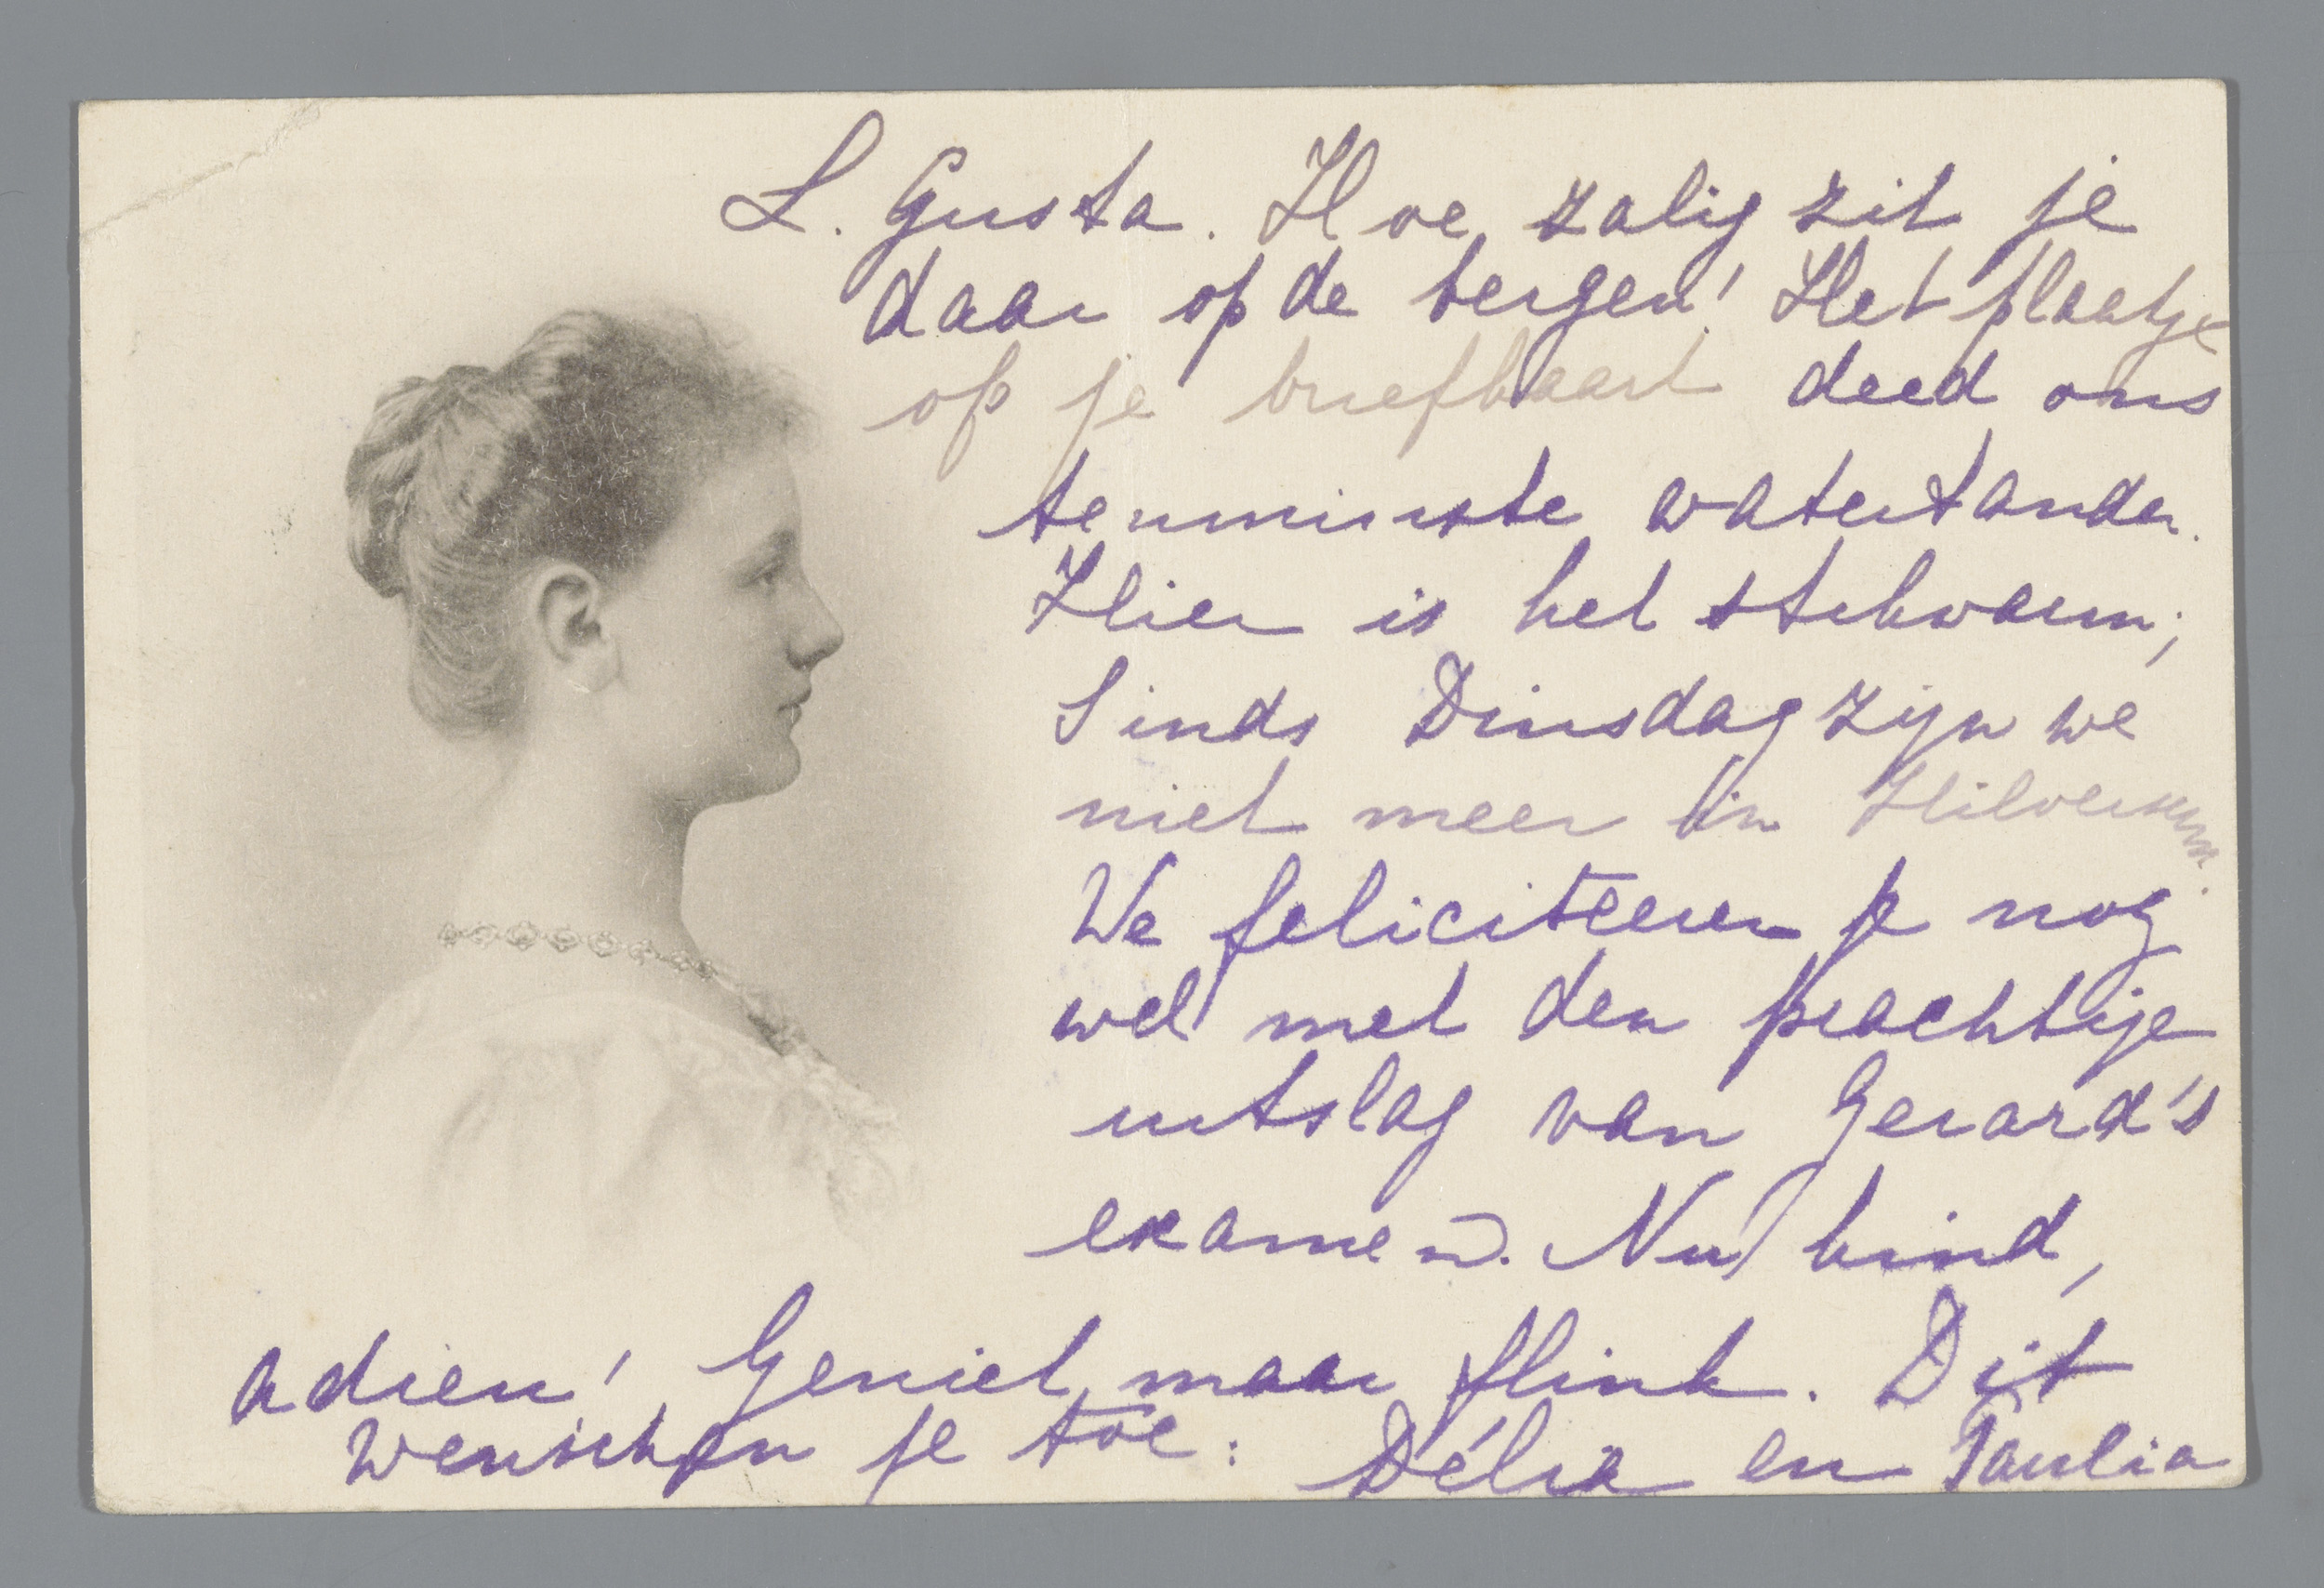 L. Gusta. Hoe zalig zit je
daar op de bergen! Het plaatje
op je briefkaart deed ons
tenminste watertanden.
Hier is het stikwarm;
Sinds Dinsdag zijn we
niet meer in Hilversum.
We feliciteeren je nog
wel met den prachtige
uitslag van Gerard's
examen. Nu kind,
adieu! Geniet maar flink. Dit
wenschen je toe: Délia en Paulia